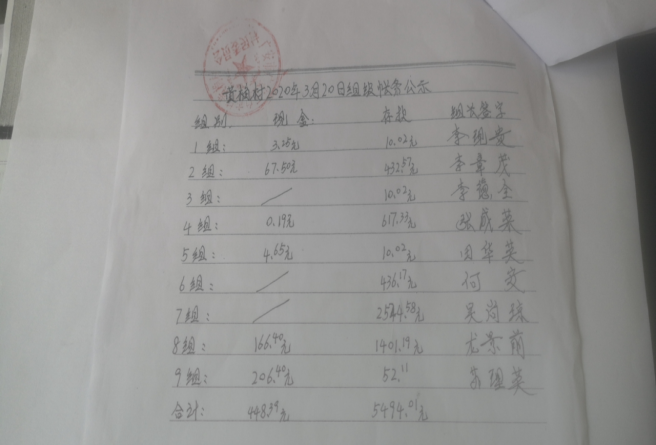 村2020年3月20日组级帐务公示
组别: 现金: 存款 组长签字
1组: 3.25元 10.02元 李现贵
2组: 67.50元 432.57元 李章茂
3组: / 10.02元 李德全
4组: 0.19元 617.33元 张成英
5组: 4.65元 10.02元 田华英
6组: / 436.17元 何
7组: / 元 吴尚琼
8组: 166.40元 1401.19元 尤景
9组: 206.40元 52.11 英
合计: 448.39元 5494.01元